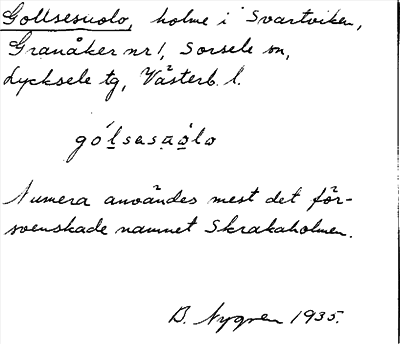 Gollsesuolo, holme i Svartviken,
Granåker nr 1, Sorsele sn,
Lycksele tg, Västerb. l.
gó̀lsesaòlo
Numera användes mest det för-
svenskade namnet Skrakaholmen.
B. Nygren 1935.